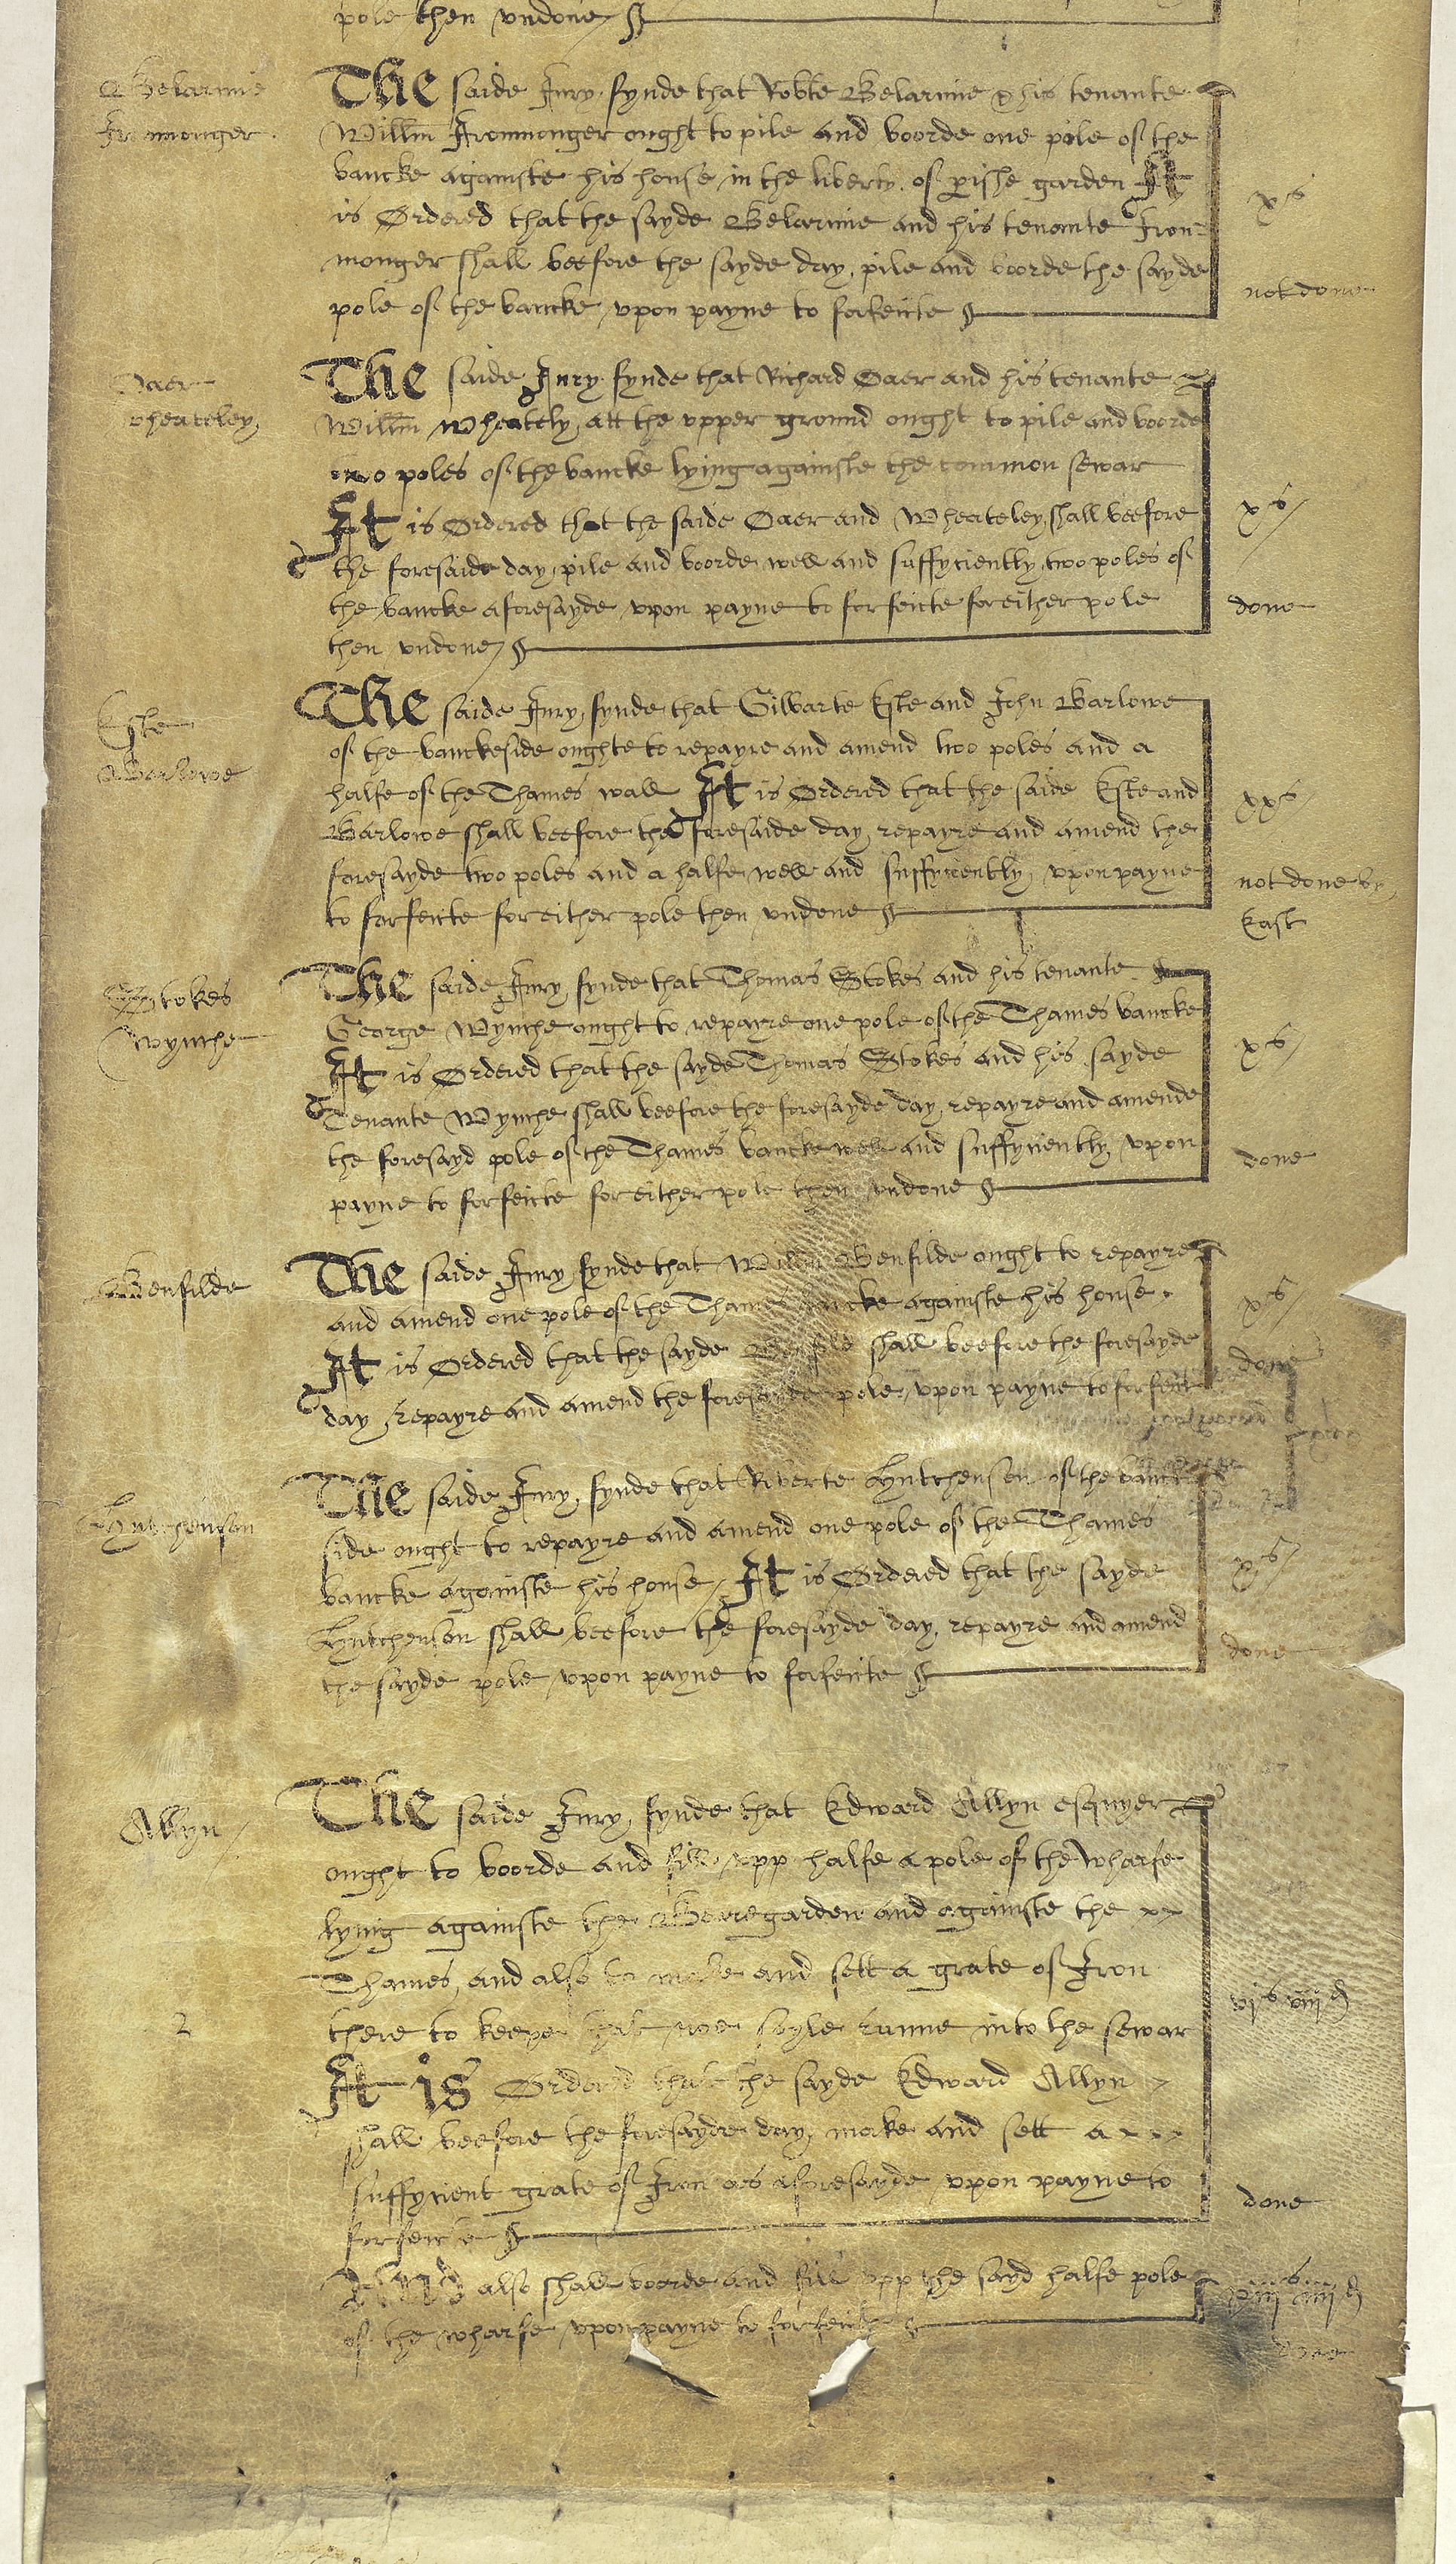 pole then vndone
Belarmie
Ironmonger
The saide Jury fynde that Robte Belarmie & his tenante
Willm Ironmonger ought to pile and boorde one pole of the
bancke againste his house in the liberty of parishe garden It
is Ordered that the sayde Belarmie and his tenante Iron=
monger shall beefore the sayde day, pile and boorde the sayde
pole of the bancke vpon payne to forfeicte
xs
not done
Oaer
wheateley
The saide Jury fynde that Richard Oaer and his tenante
Willm Wheately, att the vpper ground ought to pile and boorde
two poles of the bancke lying againste the common sewar
It is Ordered that the saide Oaer and Wheateley, shall beefore
the foresaide day, pile and boorde well and suffyciently, two poles of
the bancke aforesayde, vpon payne to forfeicte for either pole
then vndone
xs
done
Este
Barlowe
The saide Jury, fynde that Gilbarte Este and John Barlowe
of the banckeside oughte to repayre and amend two poles and a
halfe of the Thames wall It is Ordered that the saide Este and
Barlowe shall beefore the foresaide day, repayre and amend the
foresayde two poles and a halfe well and suffyciently, vpon payne
to forfeicte for either pole then vndone
xxs
not done by
East
Stokes
Wynche
The saide Jury fynde that Thomas Stokes and his tenante
George Wynche ought to repayre one pole of the Thames bancke
It is Ordered that the sayde Thomas Stokes and his sayde
Tenante Wynche shall beefore the foresayde day, repayre and amende
the foresayd pole of the Thames bancke well and suffyciently, vpon
payne to forfeicte for either pole then vndone
xs
done
Benfilde
The saide Jury fynde that Willm Benfilde ought to repayre
and amend one pole of the Thames bancke againste his house
It is Ordered that the sayde Benfilde shall beefore the foresayde
day, repayre and amend the foresayde pole, vpon payne to forfeict
xs
done
Hutchenson
The saide Jury, fynde that Roberte Hutchenson of the banck
side ought to repayre and amend one pole of the Thames
bancke againste his house, It is Ordered that the sayde
Hutchenson shall beefore the foresayde day, repayre and amend
the sayde pole, vpon payne to forfeicte
xs
done
Allyn
The saide Jury, fynde that Edward Allyn esquyer
ought to boorde and fill vpp halfe a pole of the wharfe
lying againste the Bearegarden and againste the
Thames, and also to make and sett a grate of Iron
there to keepe that noe soyle runne into the sewar
It is Ordered that the sayde Edward Allyn
shall beefore the foresayde day, make and sett a
suffycient grate of Iron as aforesayde, vpon payne to
forfeicte
vjs viijd
done
And also shall boorde and fill vpp the sayd halfe pole
of the wharfe vpon payne to forfeicte
xiijs iiijd
done
2